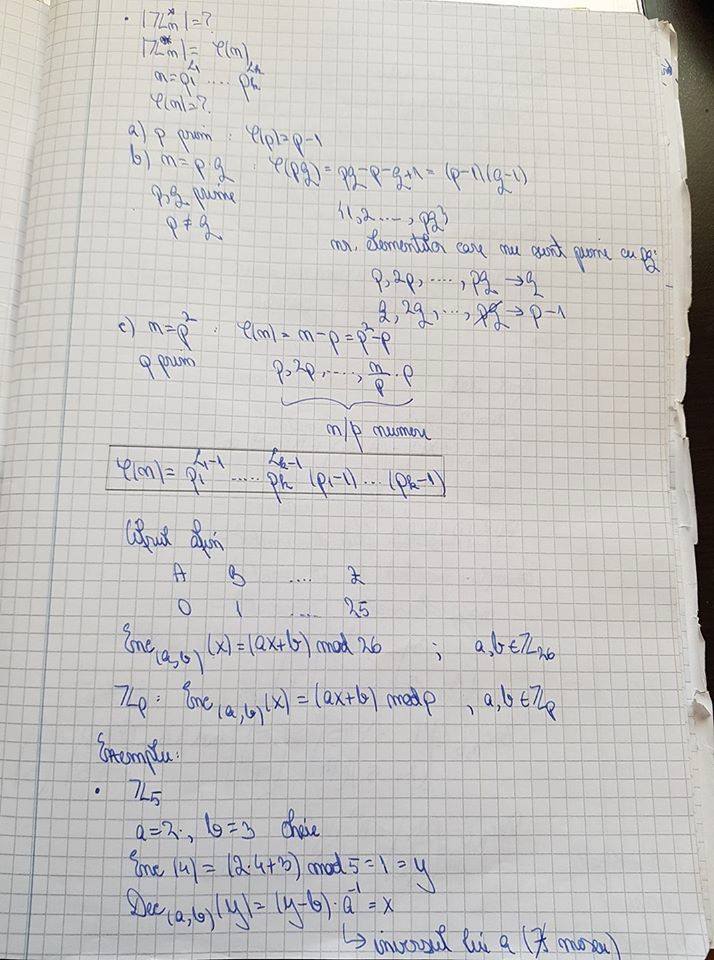 • |ℤₙ*| = ?
|ℤₙ*| = φ(n)
n = p₁^α₁ .... pₖ^αₖ
φ(n) = ?
a) p prim : φ(p) = p-1
b) n = p·q : φ(pq) = pq-p-q+1 = (p-1)(q-1)
p,q prime {1,2....., pq}
p≠q nr. elementelor care nu sunt prime cu pq:
p, 2p, ....., pq → q
q, 2q, ..., pq → p-1
c) n = p² : φ(n) = n-p = p²-p
p prim p, 2p, ....., n/p · p
n/p numere
φ(n) = p₁^(α₁-1) ..... pₖ^(αₖ-1) (p₁-1) ... (pₖ-1)
Cifrul afin
A B .... Z
0 1 .... 25
Enc₍a,b₎ (x) = (ax+b) mod 26 ; a,b ∈ ℤ₂₆
ℤₚ : Enc₍a,b₎ (x) = (ax+b) mod p , a,b ∈ ℤₚ
Exemplu:
• ℤ₅
a=2., b=3 cheie
Enc (4) = (2·4+3) mod 5 = 1 = y
Dec₍a,b₎ (y) = (y-b)·a⁻¹ = x
↳ inversul lui a